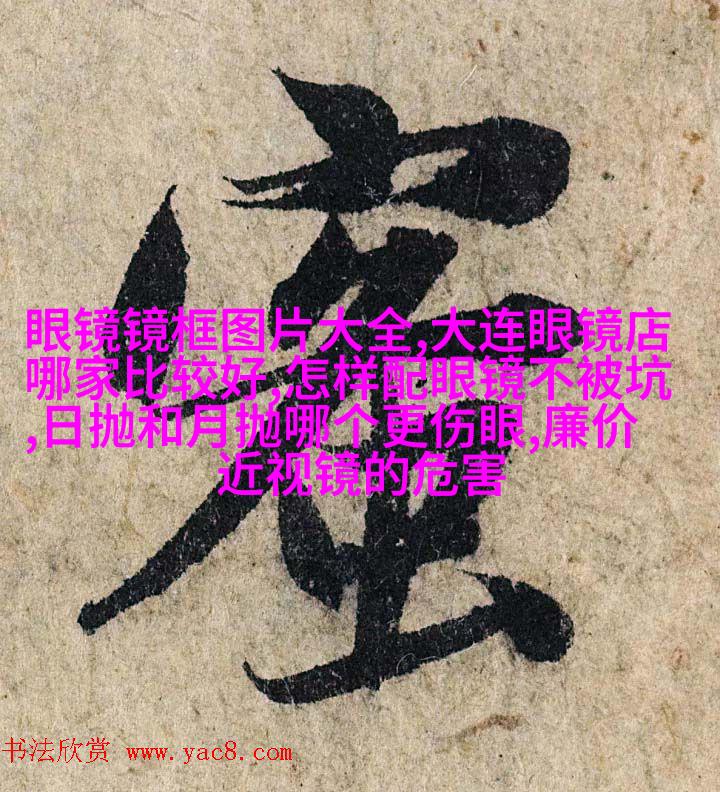 眼镜镜框图片大全,大连眼镜店
哪家比较好,怎样配眼镜不被坑
,日抛和月抛哪个更伤眼,廉价
近视镜的危害
书法欣赏 www.yac8.com